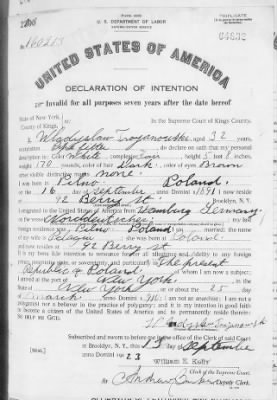 U. S. DEPARTMENT OF LABOR
TRIPLICATE
No. 160213
UNITED STATES OF AMERICA
DECLARATION OF INTENTION
Invalid for all purposes seven years after the date hereof
State of New York,
County of Kings,
In the Supreme Court of Kings County.
I, Wladyslaw Trojanowski, aged 32 years,
occupation do declare on oath that my personal
description is: Color White, complexion Fair, height 5 feet 6 inches,
weight 170 pounds, color of hair Dark, color of eyes Brown
other visible distinctive marks none.
I was born in Pilno, Poland
on the 16 day of September, anno Domini 1891; I now reside
at 92 Berry St., Brooklyn, N. Y.
I emigrated to the United States of America from Hamburg Germany
on the vessel; my last
foreign residence was Pilno Poland; I am married; the name
of my wife is; she was born in Poland
and now resides at 92 Berry St
It is my bona fide intention to renounce forever all allegiance and fidelity to any foreign
prince, potentate, state, or sovereignty, and particularly to The present
Republic of Poland, of whom I am now a subject;
I arrived at the port of New York, in the
State of New York, on or about the 25 day
of March, anno Domini; I am not an anarchist; I am not a
polygamist nor a believer in the practice of polygamy; and it is my intention in good faith
to become a citizen of the United States of America and to permanently reside therein:
SO HELP ME GOD.
Subscribed and sworn to before me in the office of the Clerk of said Court
at Brooklyn, N. Y., this 13 day of September
anno Domini 1923
[SEAL]
William E. Kelly
Clerk of the Supreme Court.
By, Deputy Clerk.